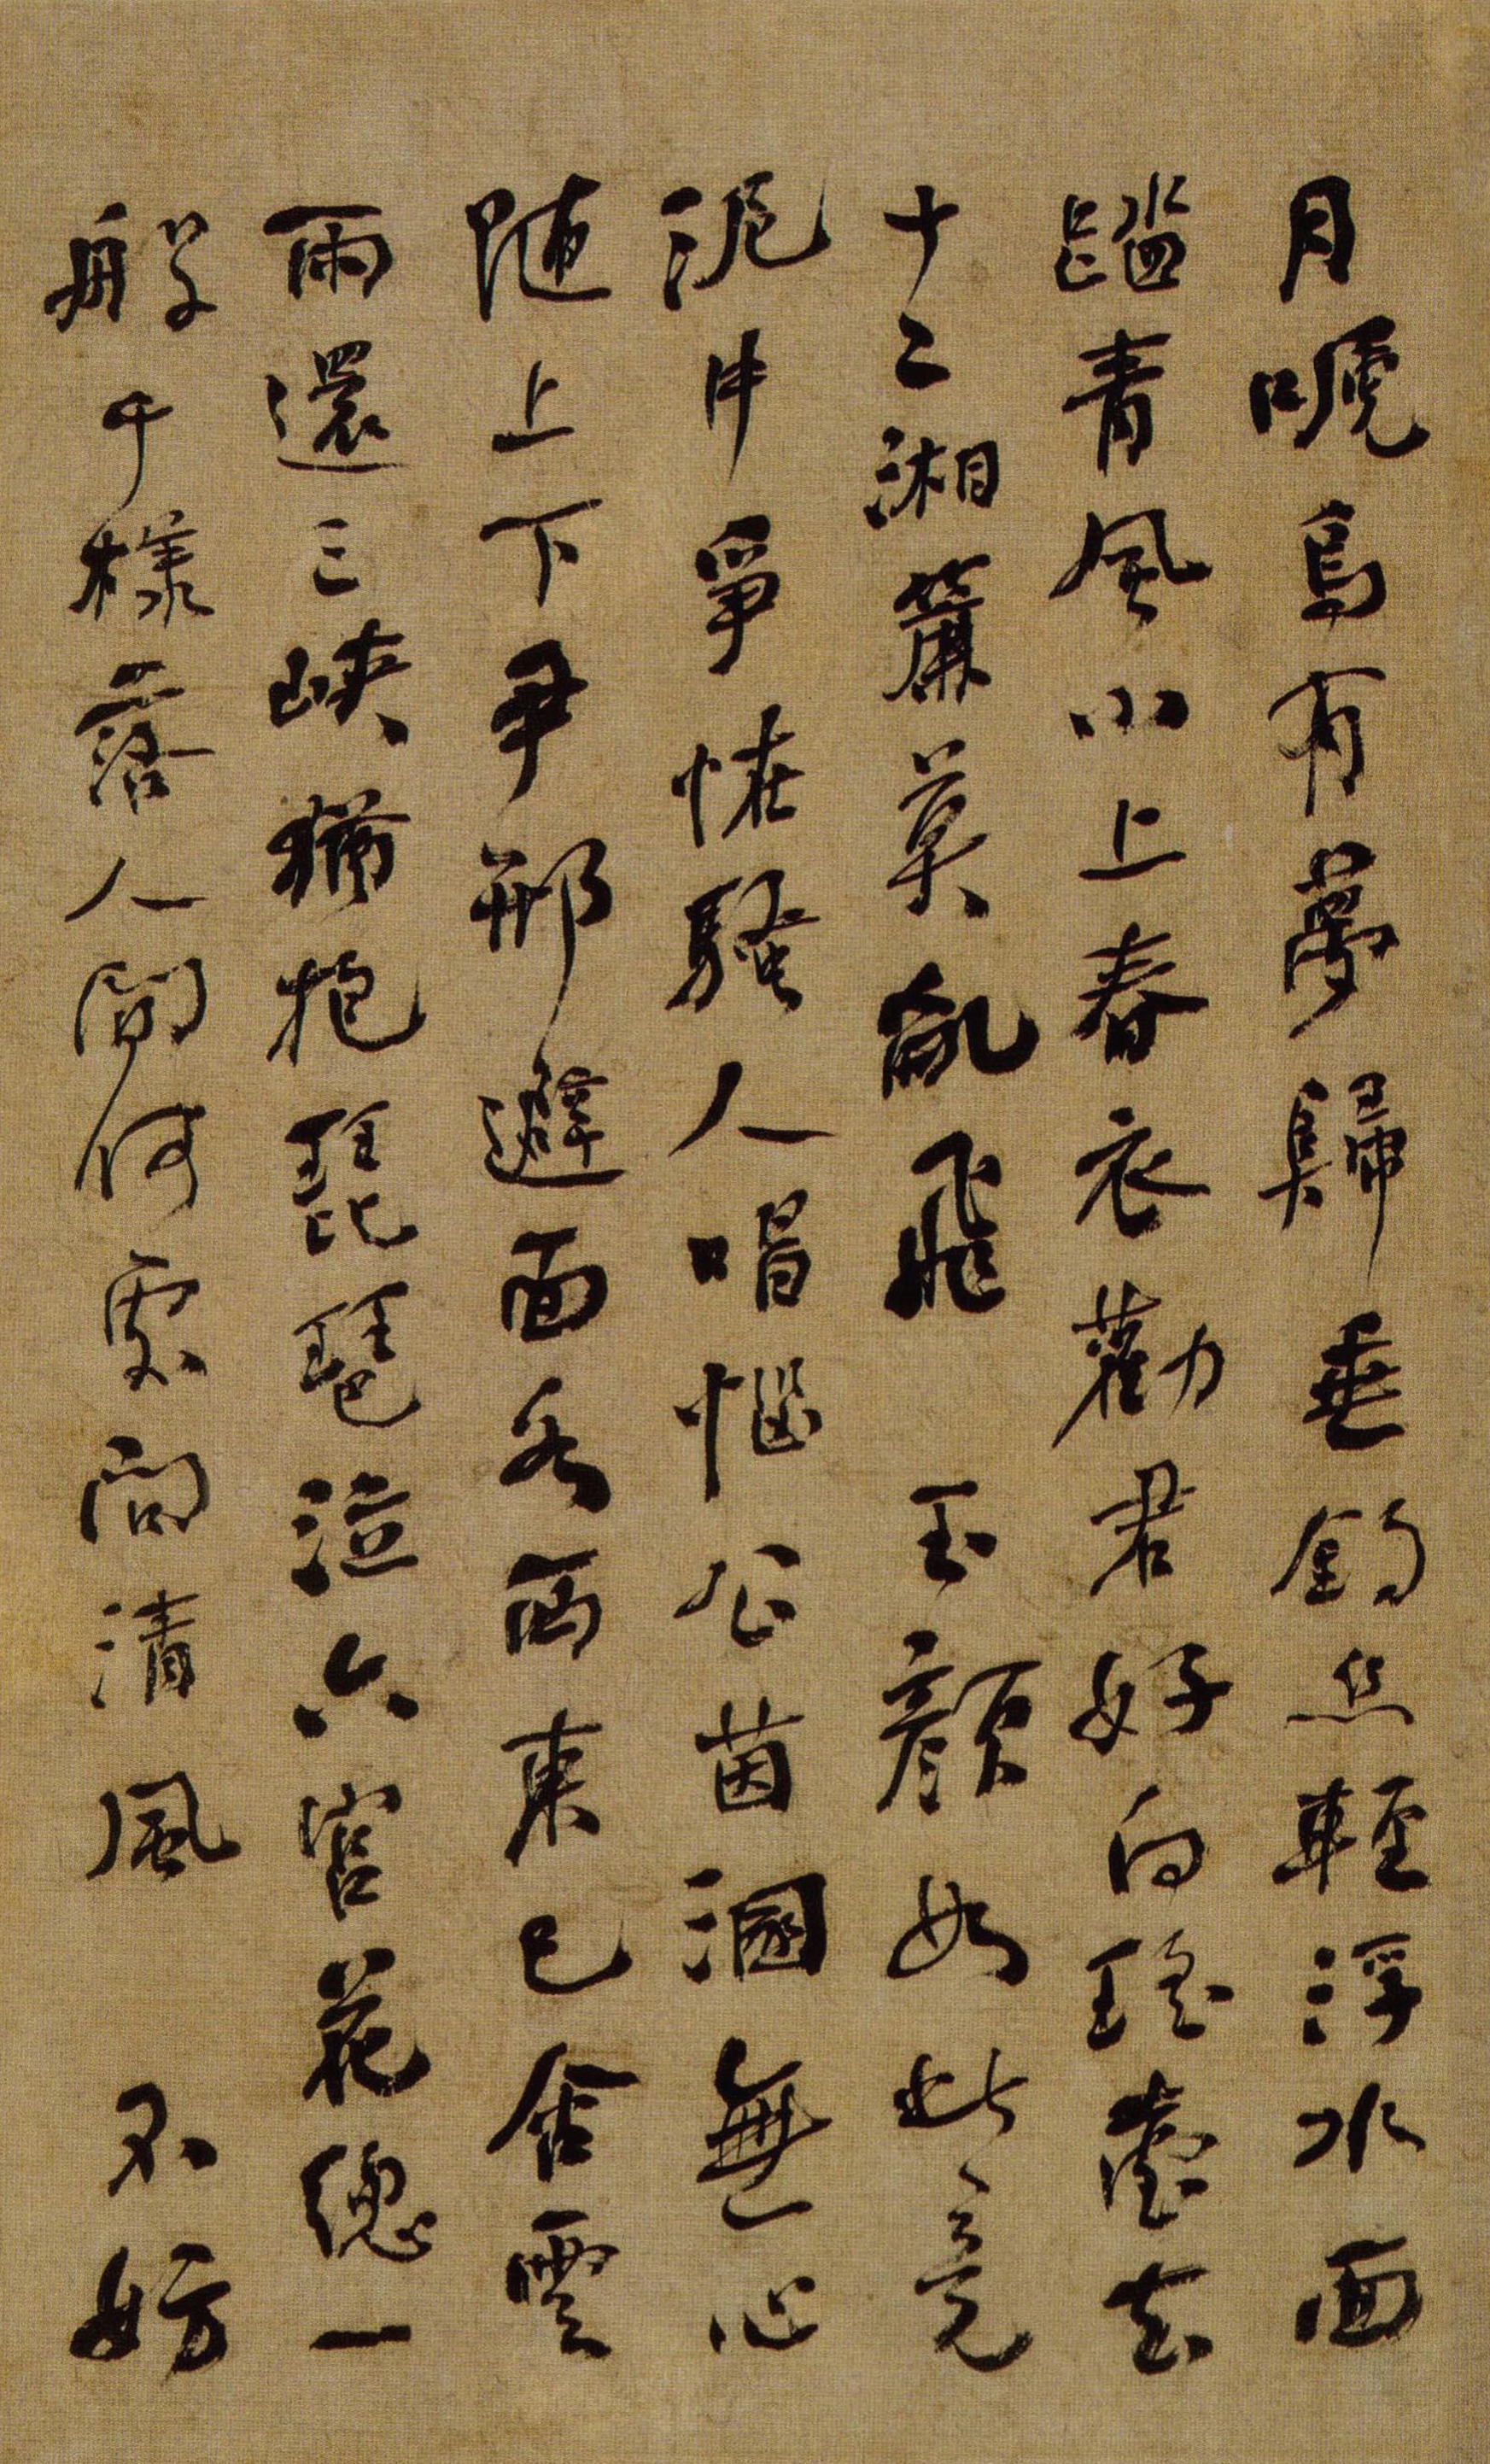 月唳烏有夢歸垂釣絲輕浮水面
踏青風小上春衣勸君好向瑤臺去
十二湘簾莫亂飛 玉顏如此竟
泥中爭怪騷人唱惱公茵溷無心
随上下尹邢避面各西東已含雲
雨還三峽猶抱琵琶泣六宮花總一
般千樣落人間何處問清風 不妨